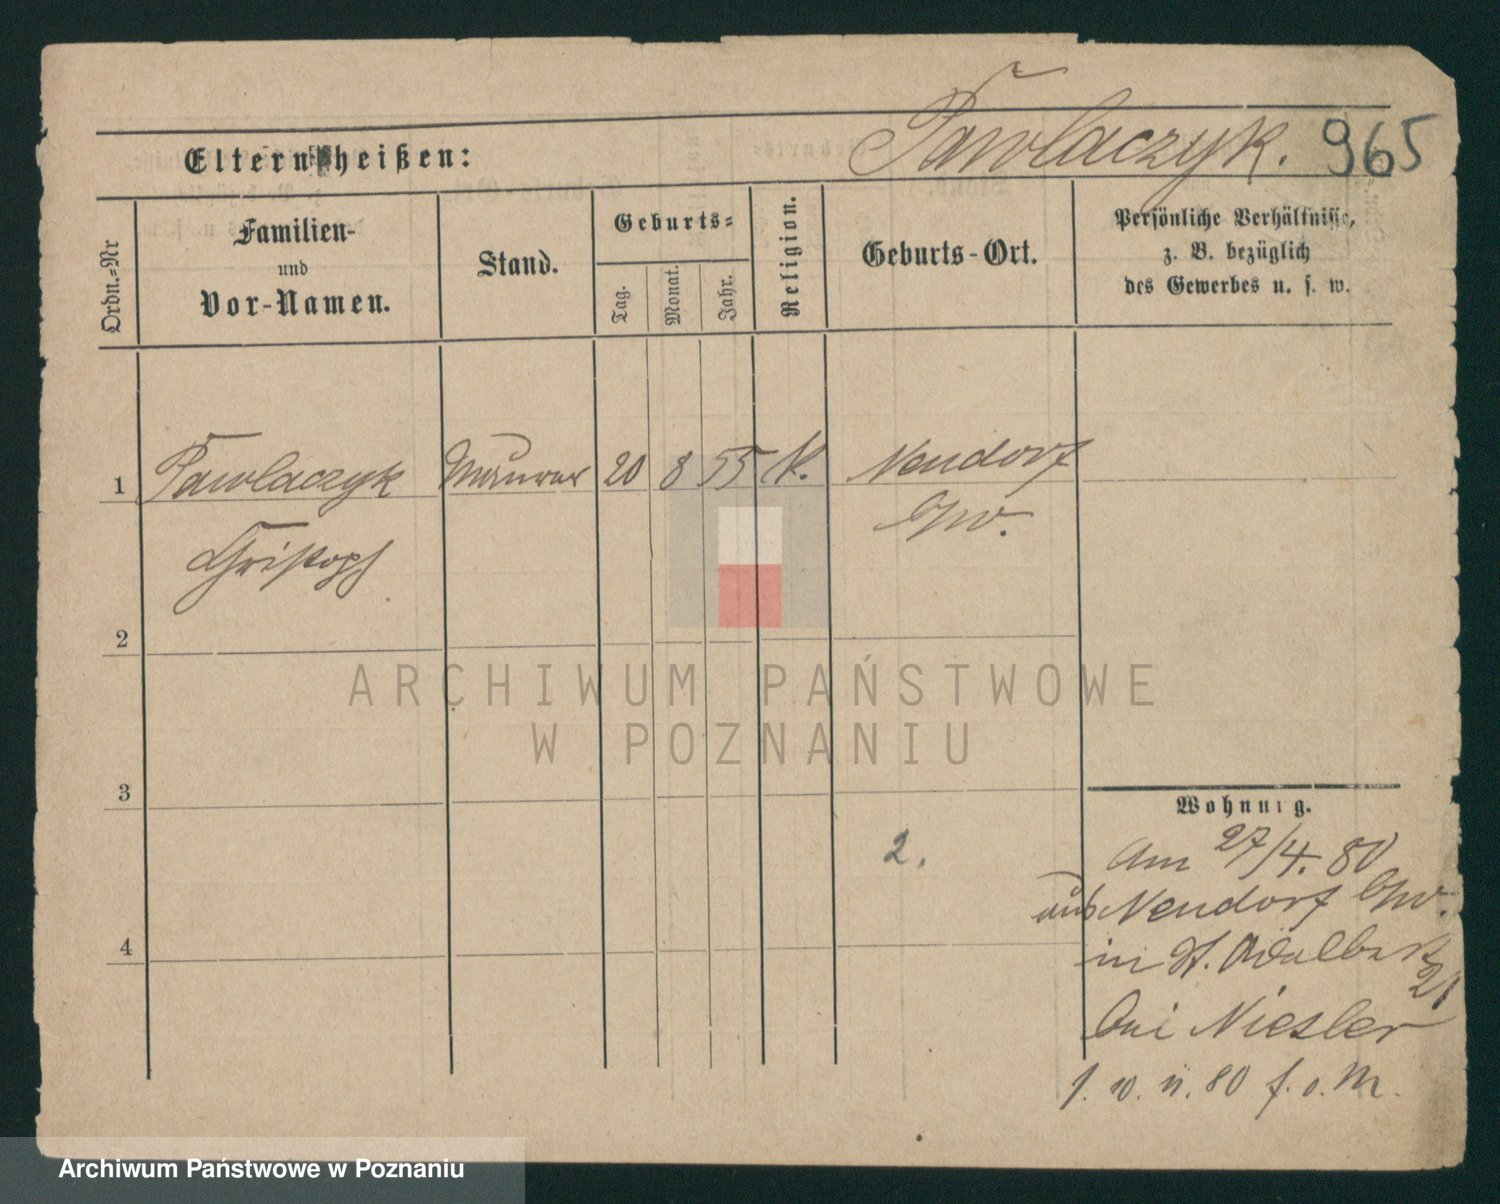 Pawlaczyk. 965
Eltern heißen:
Ordn.=Nr
Familien-
und
Vor-Namen.
Stand.
Geburts=
Tag.
Monat.
Jahr.
Religion.
Geburts-Ort.
Persönliche Verhältnisse,
z. B. bezüglich
des Gewerbes u. s. w.
1 Pawlaczyk Maurer 20 8 55 K. Neudorf
Christoph
2
ARCHIWUM PAŃSTWOWE
W POZNANIU
3
Wohnung.
2.
Am 27/4. 80
aus Neudorf
4
in St. Adalbert
21
bei Niesler
80
Archiwum Państwowe w Poznaniu